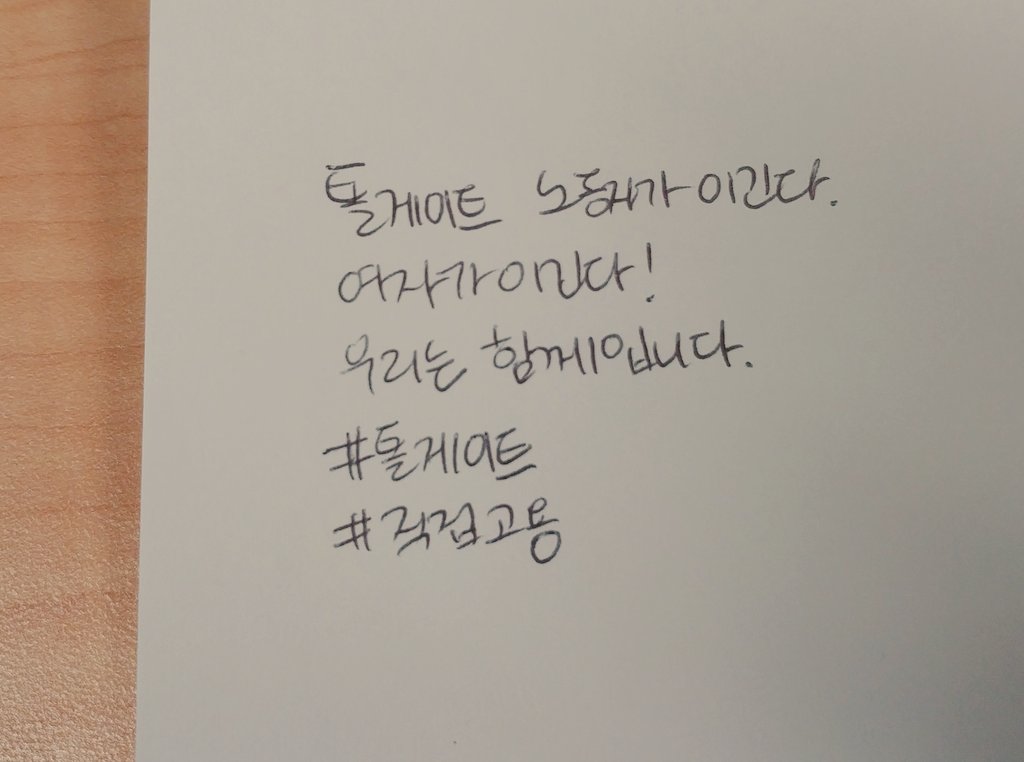 톨게이트 노동자가 이긴다.
여자가 이긴다!
우리는 함께입니다.
#톨게이트
#직접고용